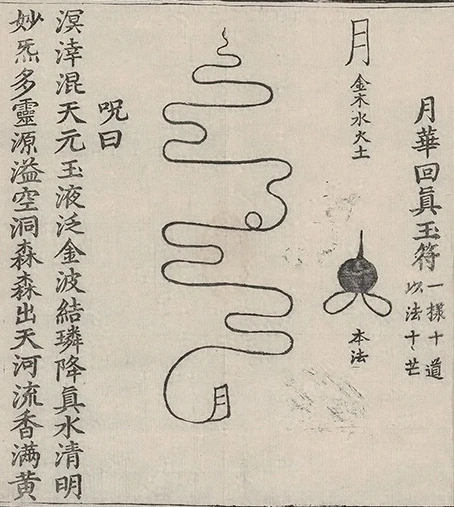 月華回眞玉符
一樣十道
以法十〻芒
月
金木水火土
本法
月
呪曰
溟涬混天元玉液泛金波結璘降眞水清明
妙炁多靈源溢空洞森森出天河流香滿黄